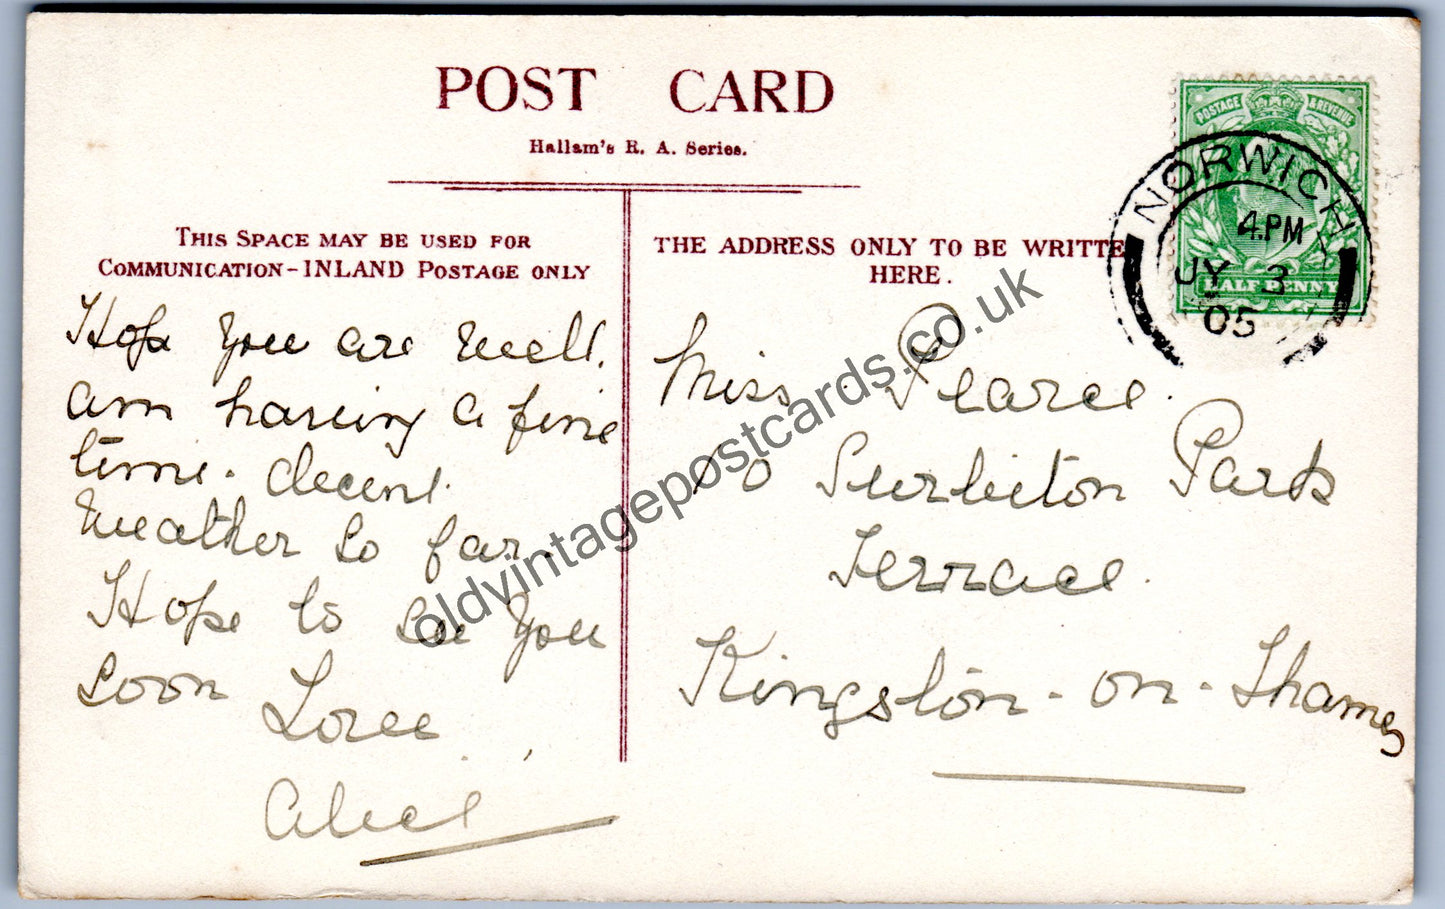 POST CARD
Hallam's R. A. Series.
THIS SPACE MAY BE USED FOR
COMMUNICATION-INLAND POSTAGE ONLY
Hope you are well.
am having a fine
time. decent
weather so far.
Hope to see you
soon
Love
Alice
THE ADDRESS ONLY TO BE WRITTE
HERE.
Miss Pearce.
60 Surbiton Park
Terrace.
Kingston-on-Thames
POSTAGE & REVENUE
HALF PENNY
NORWICH
4.PM
JY 3
05
oldvintagepostcards.co.uk